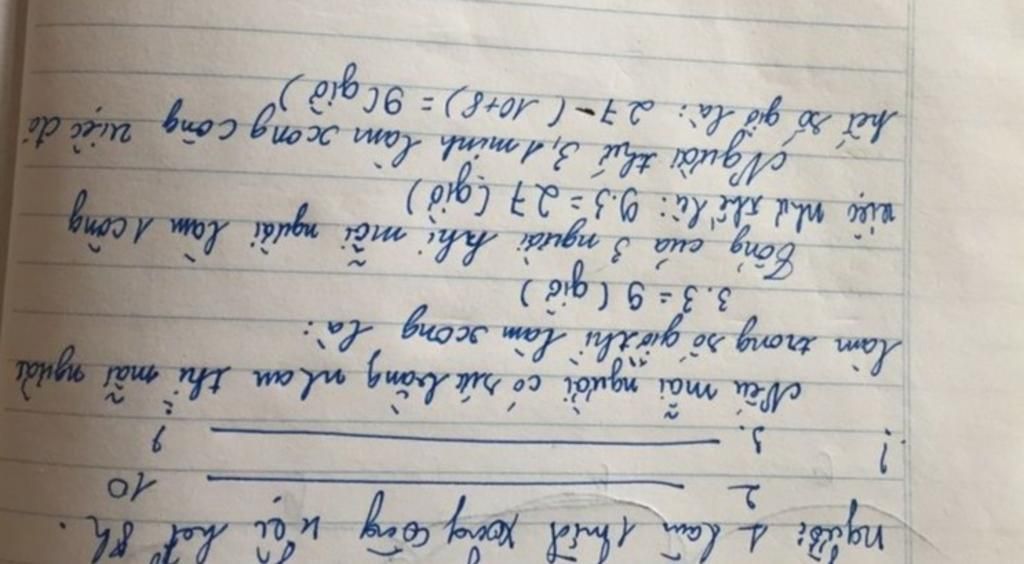 người 1 làm 1 mình xong công việc hết 8h.
2 ——— 10
! 3. ——— ?
Nếu mỗi người có sức bằng nhau thì mỗi người
làm trong số giờ thì làm xong là:
3.3 = 9 (giờ)
Tổng của 3 người khi mỗi người làm 1 công
việc như thế là: 9.3 = 27 (giờ)
Người thứ 3, 1 mình làm xong công việc đó
hết số giờ là: 27 - (10+8) = 9 (giờ)